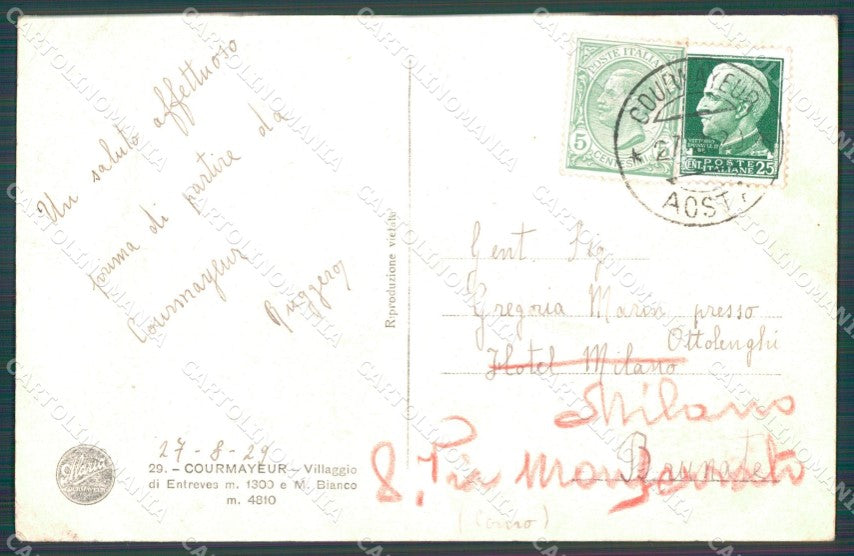 Un saluto affettuoso
prima di partire da
Courmayeur
Ruggero
27-8-29
29. - COURMAYEUR - Villaggio
di Entreves m. 1300 e M. Bianco
m. 4810
Riproduzione vietata
POSTE ITALIANE
5
CENTESIMI
VITTORIO
CENT. POSTE 25
ITALIANE
COURMAYEUR
27
AOSTA
Gent. Sig.
Gregoria Marin presso
Ottolenghi
Hotel Milano
Milano
Brunate
8, Via
(Como)
CARTOLINOMANIA